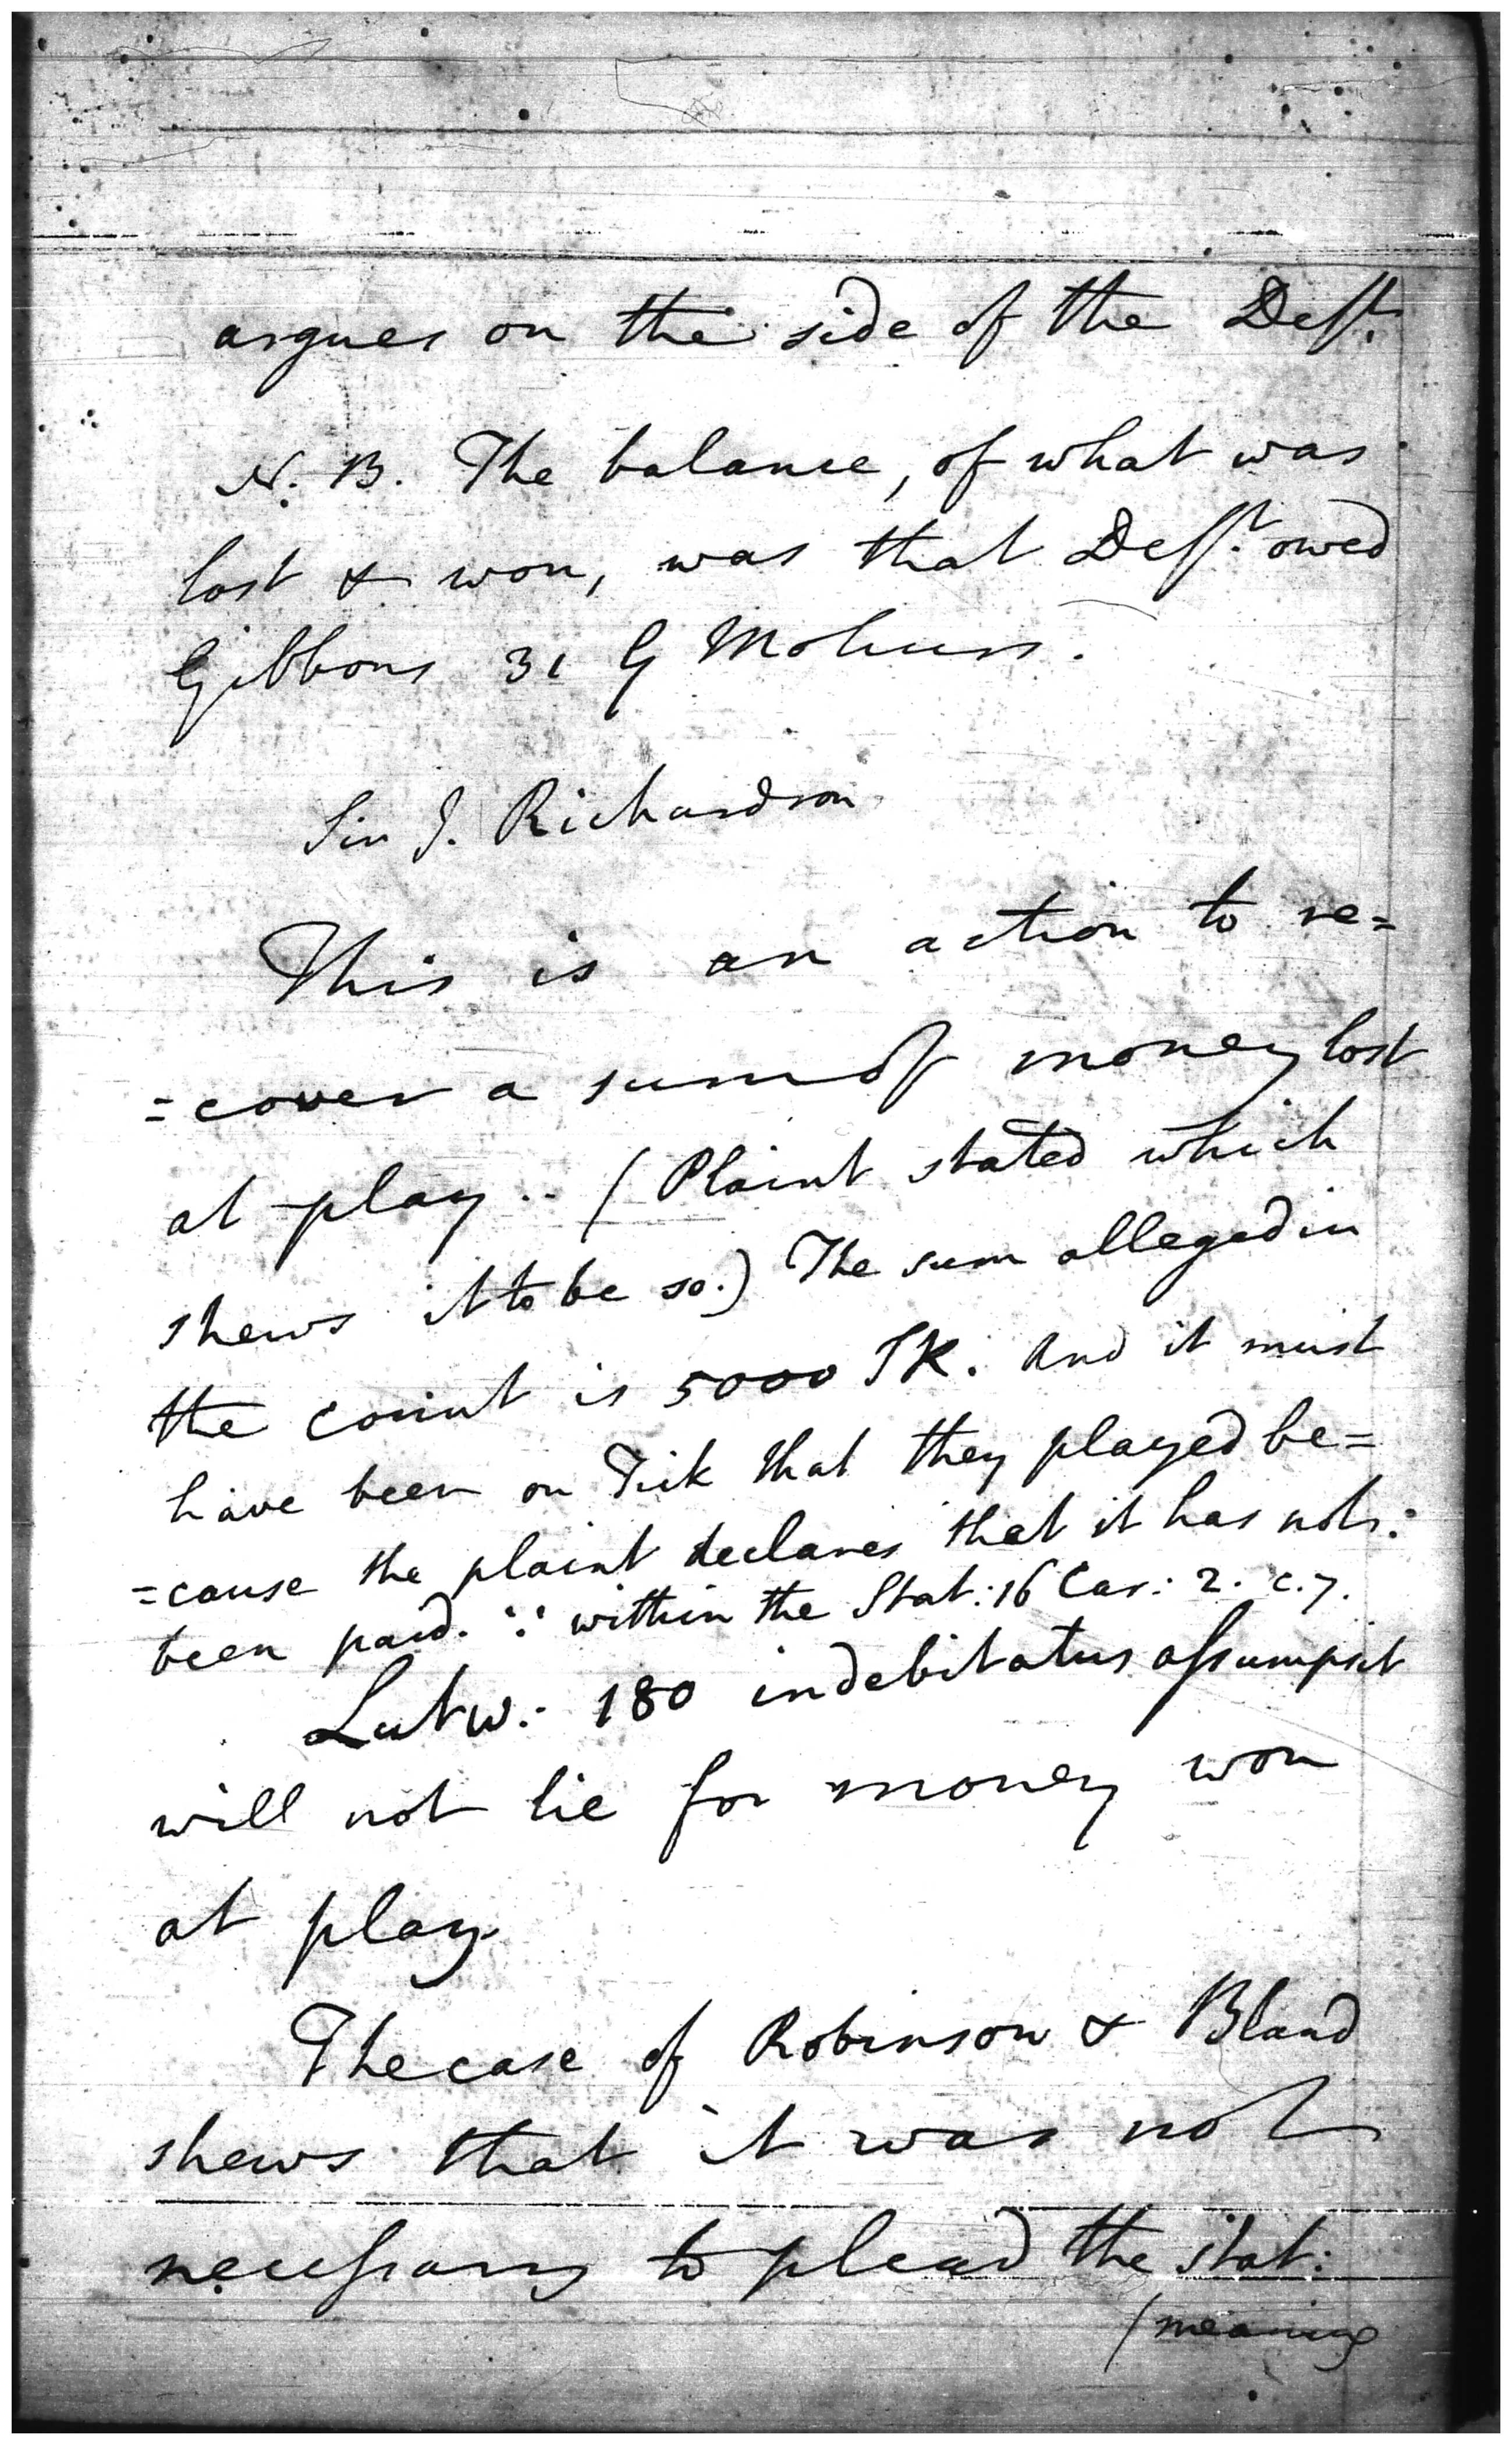 argues on the side of the Deft.
N. B. The balance, of what was
lost & won, was that Deft. owed
Gibbons 31 G Mohurs.
Sir J. Richardson
This is an action to re=
=cover a sum of money lost
at play .. (Plaint stated which
shews it to be so.) The sum alleged in
the count is 5000 SR. And it must
have been on Tick that they played be=
=cause the plaint declares that it has not
been paid. ∵ within the Stat: 16 Car: 2. c. 7.
Lutw: 180 indebitatus assumpsit
will not lie for money won
at play.
The case of Robinson & Bland
shews that it was not
necessary to plead the stat:
(meaning